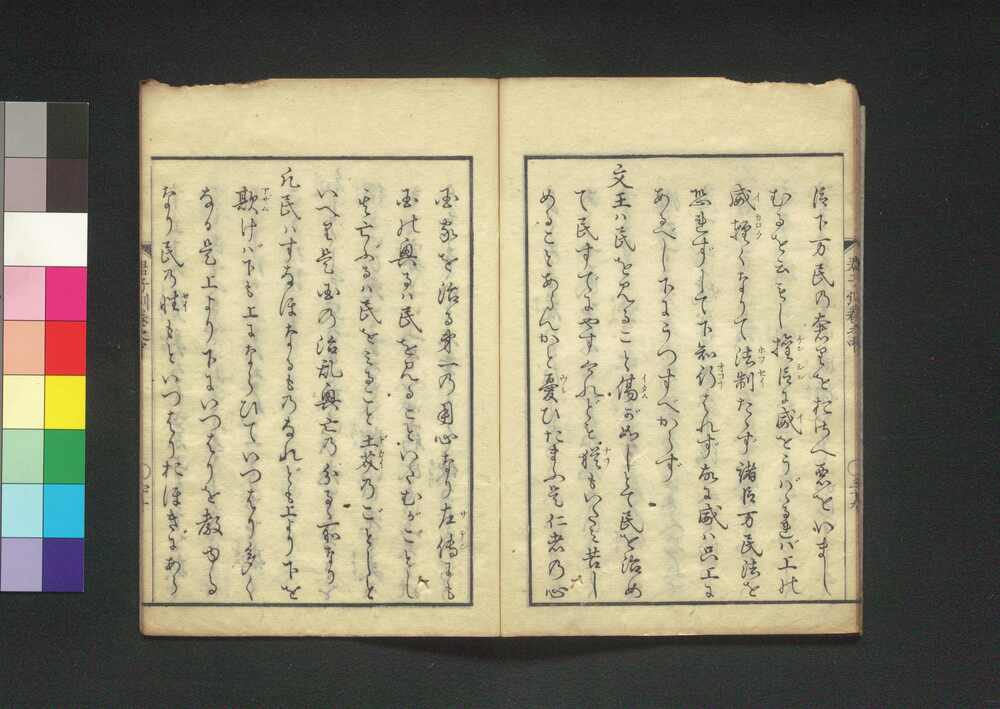 臣下万民の奢りをおさへ悪をいまし
むるを云もし權臣に威をうばゝるれバ上の
威輕くなりて法制たゝず諸臣万民法を
恐れずして下知行はれず故に威ハ只上に
あるべし下にうつすべからず
文王ハ民を見ること傷むが如しとて民を治め
て民すでにやすけれどと猶もいたみ苦し
めることあらんかと憂ひたまふ是仁者の心
君子訓巻之中
国家を治る第一の用心なり左傳にも
国の興るハ民を見ることいたむがごとし
其亡ふるハ民をみること土芥のごとしと
いへり是国の治乱興亡の分るゝ所なり
凡民ハすなほなるものなれども上より下を
欺けバ下も上にならひていつはり多く
なる是上より下にいつはりを教ゆる
なり民の性もといつはりおほきにあら
君子訓巻之中